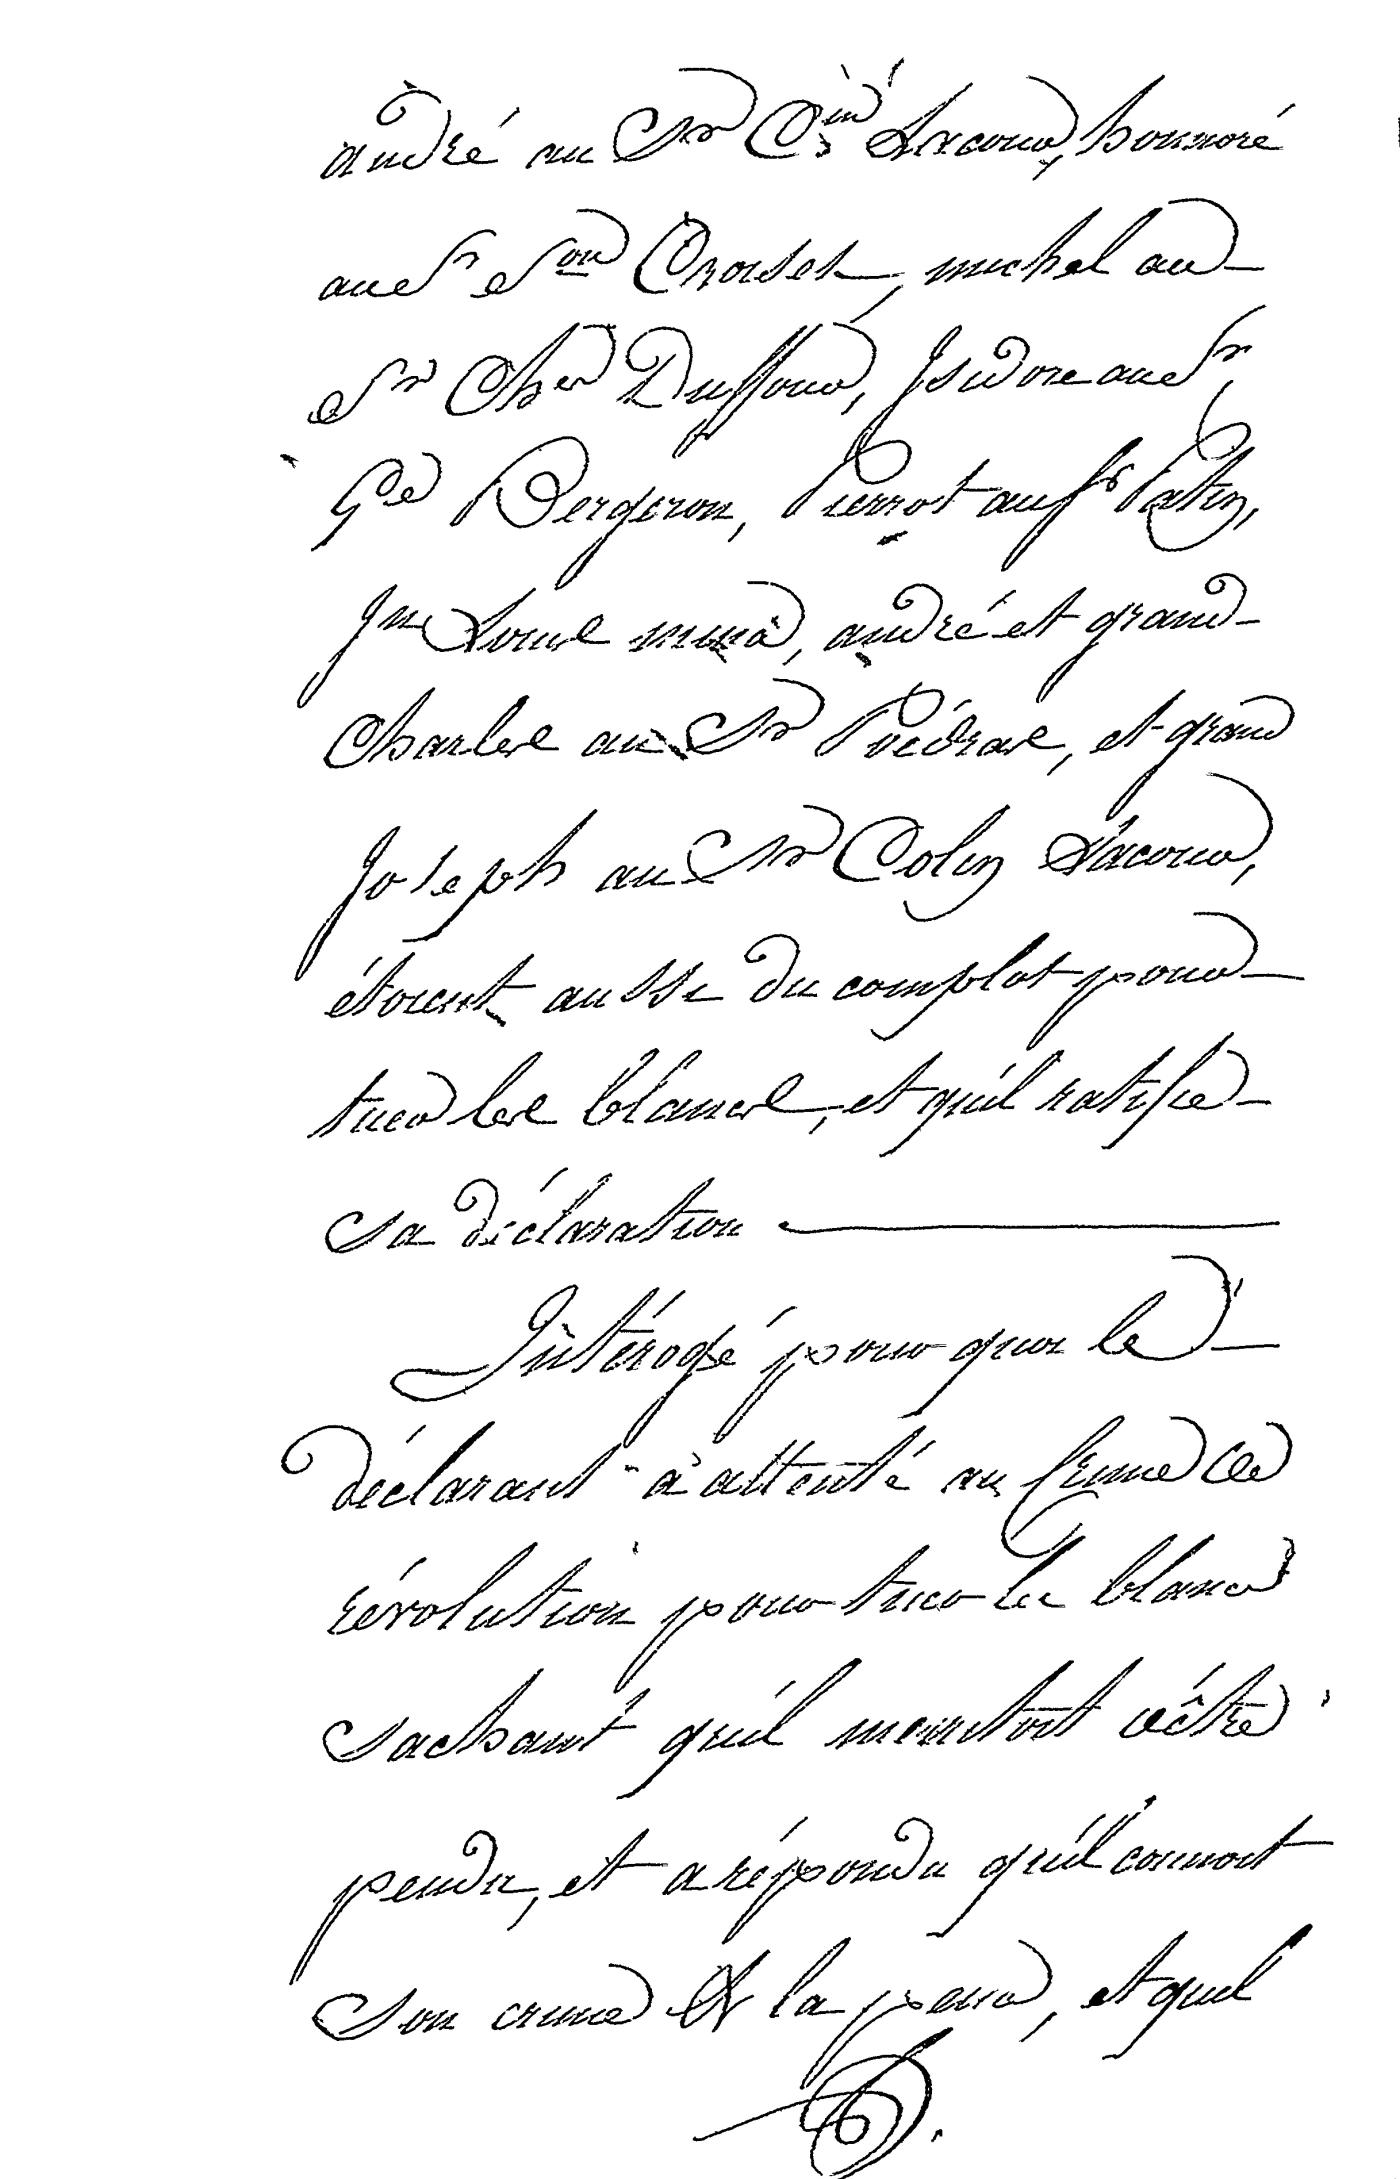 andré au Sr Cin Lacour, honnoré
au Sr Son Croiset, michel au
Sr Cher Duffour, Isidore au Sr
Ge Bergeron, Pierrot au Sr Patin,
Jn Louis mina, andré et grand
Charles au Sr Poëdras, et grand
Joseph au Sr Colin Lacour,
étoient aussi du complot pour
tuer les blancs, et qu'il ratifie
sa déclaration
Intérogé pour quoi le
déclarant à attenté au Crime de
révolution pour tuer les blancs
sachant qu'il meritoit d'être
pendu, et a répondu qu'il connoit
son crime & la peine, et quil